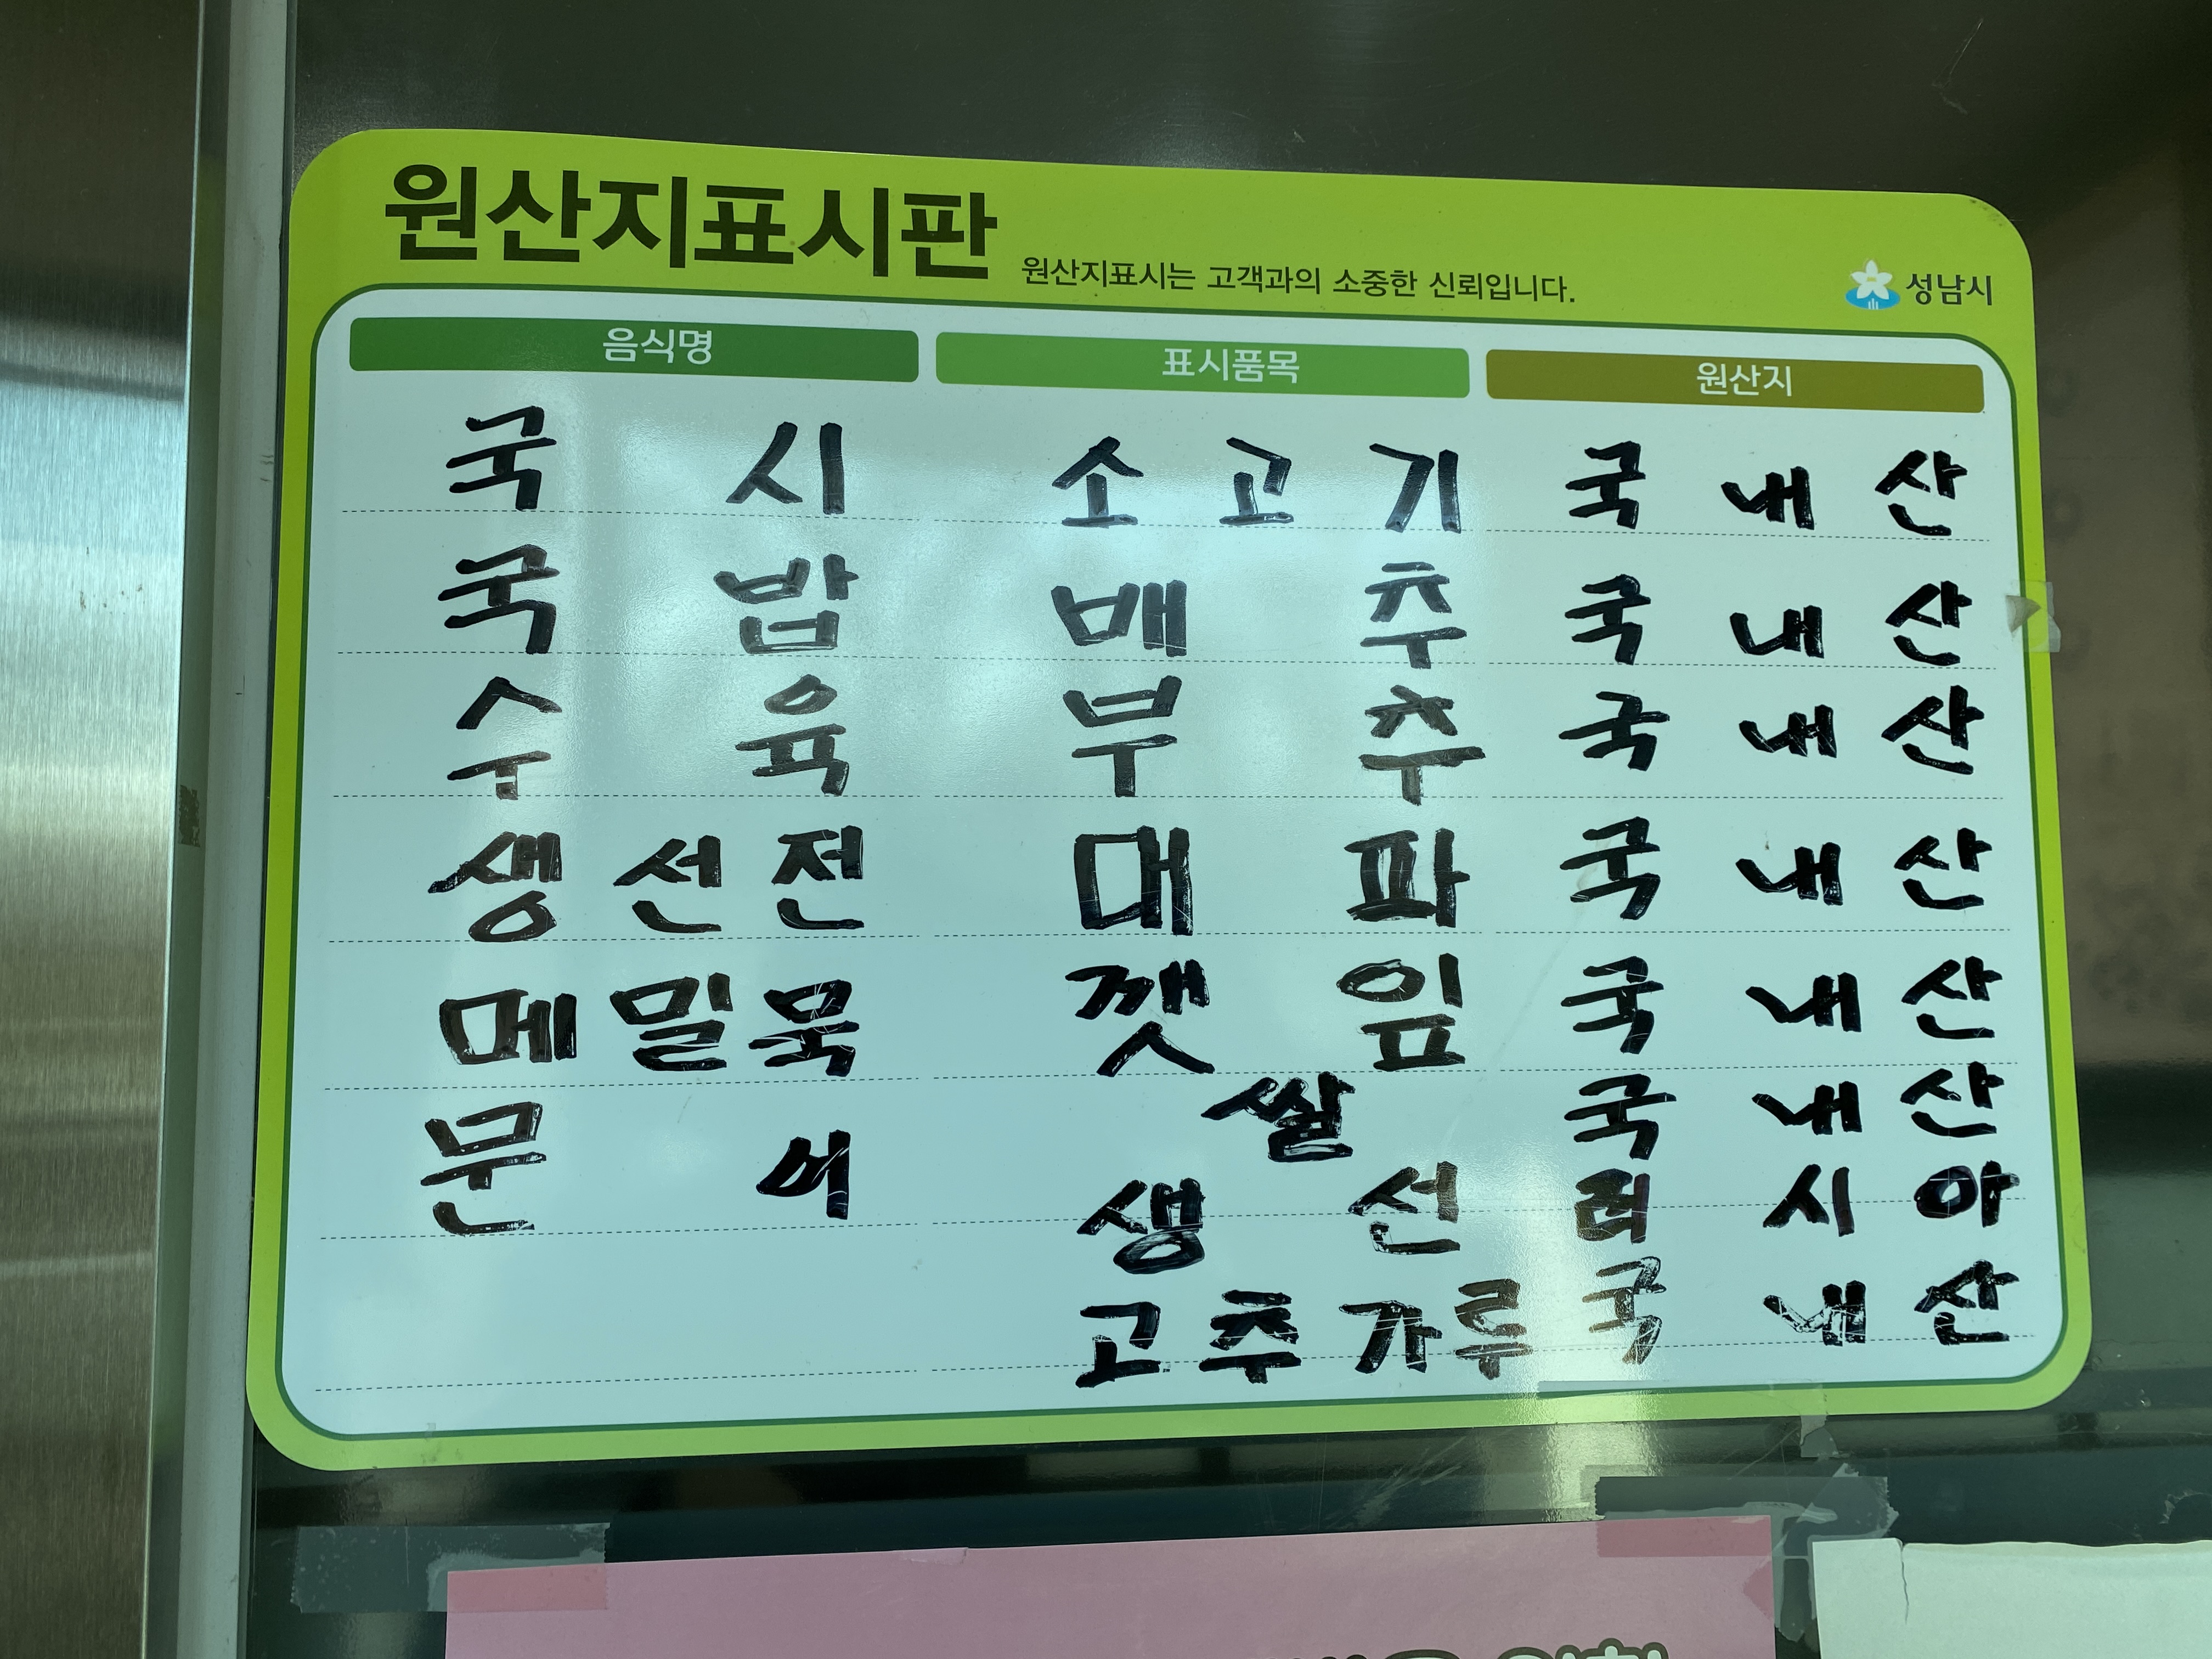 원산지표시판
원산지표시는 고객과의 소중한 신뢰입니다.
성남시
음식명 표시품목 원산지
국시 소고기 국내산
국밥 배추 국내산
수육 부추 국내산
생선전 대파 국내산
메밀묵 깻잎 국내산
문어 쌀 국내산
생선 러시아
고추가루 국내산